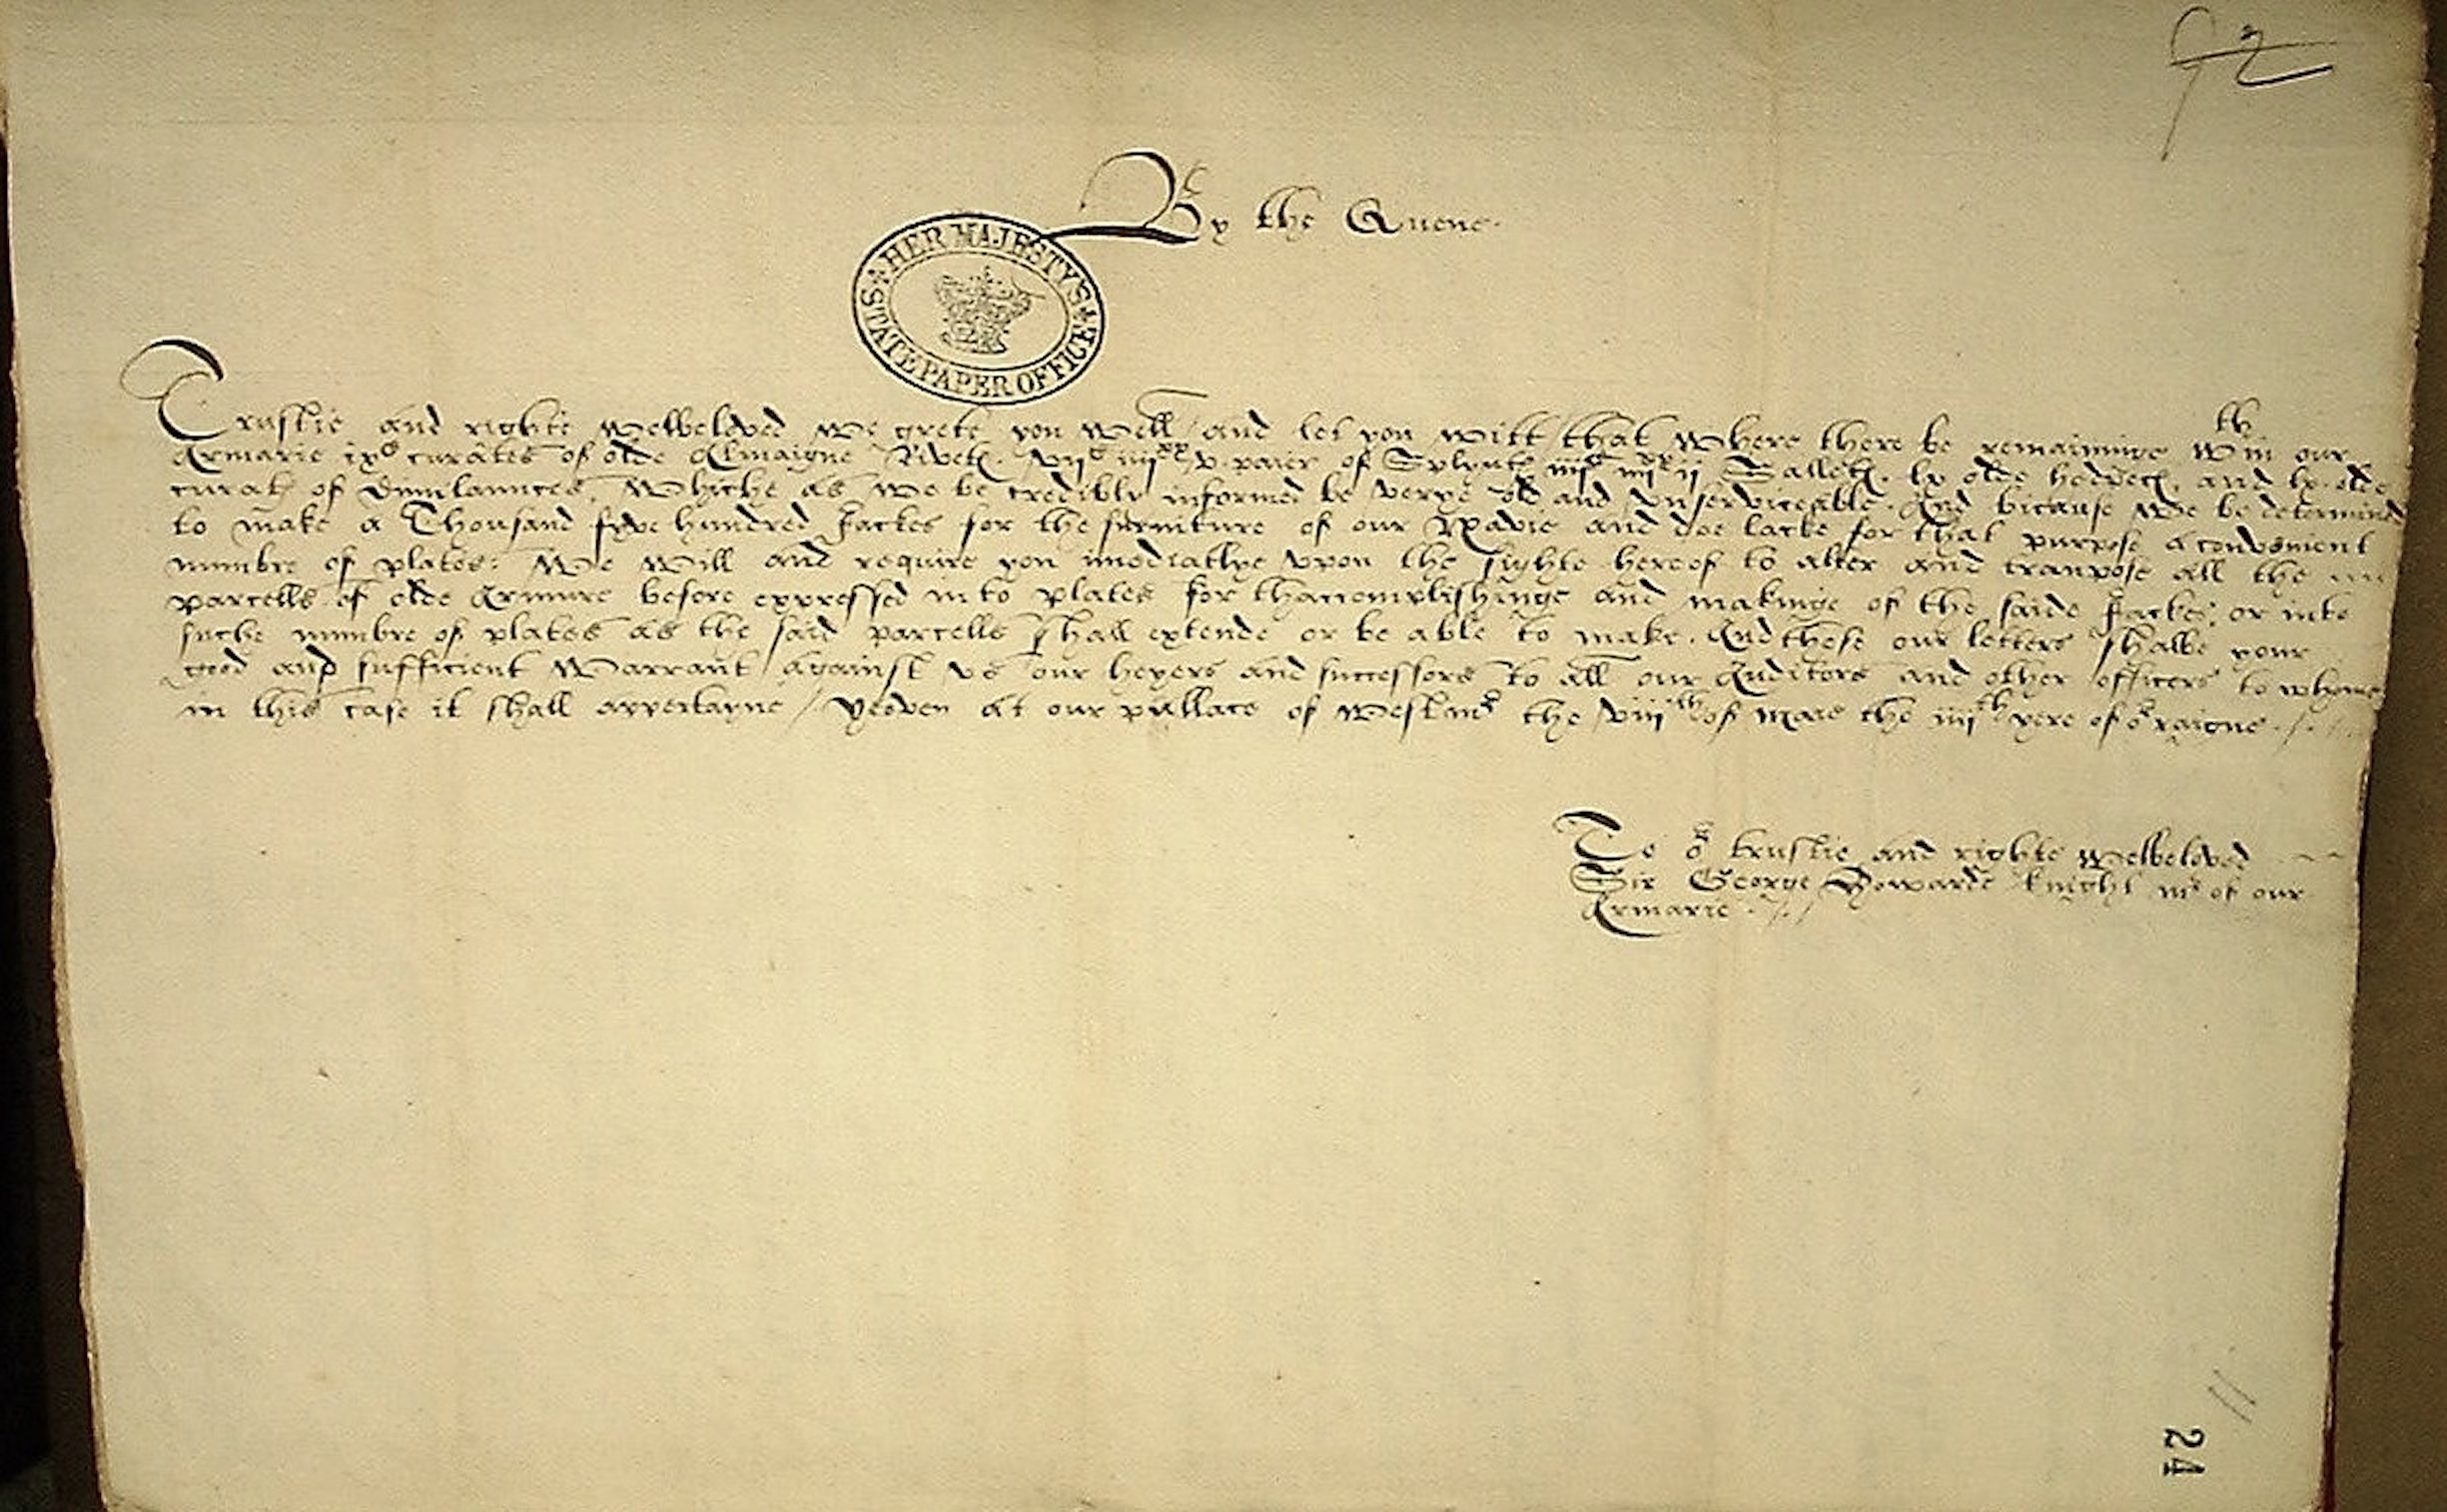 By the Quene.
HER MAJESTY'S STATE PAPER OFFICE
Trustie and righte welbeloved we grete you well / and let you witt that where there be remaininge wth in our
Armarie ixc curates of olde Almaigne Rivetes. viic iiiixx v. paier of Splyntes iiiic iiiixx ii Salletes. lx olde heddes, and lx. olde
curates of dimilaunces. Whiche as we be credibly informed be verye old and unserviceable. And bicause we be determined
to make a Thousand fyve hundred Jackes for the furniture of our Navie and doe lacke for that purpose a convenient
numbre of plates: We will and require you imediatlye upon the sighte hereof to alter and tranpose all the
parcells of olde Armure before expressed into plates for thaccomplishinge and makinge of the saide Jackes, or into
suche numbre of plates as the said parcells shall extende or be able to make. And these our letters shalbe your
good and sufficient Warrant against us our heyers and successors to all our Auditors and other officers to whome
in this case it shall appertayne / Yeoven at our pallace of Westmr the viiith of Maie the iiiith yere of or raigne . / .
To or trustie and righte welbeloved
Sir George Howarde knight mr of our
Armarie . / /
24